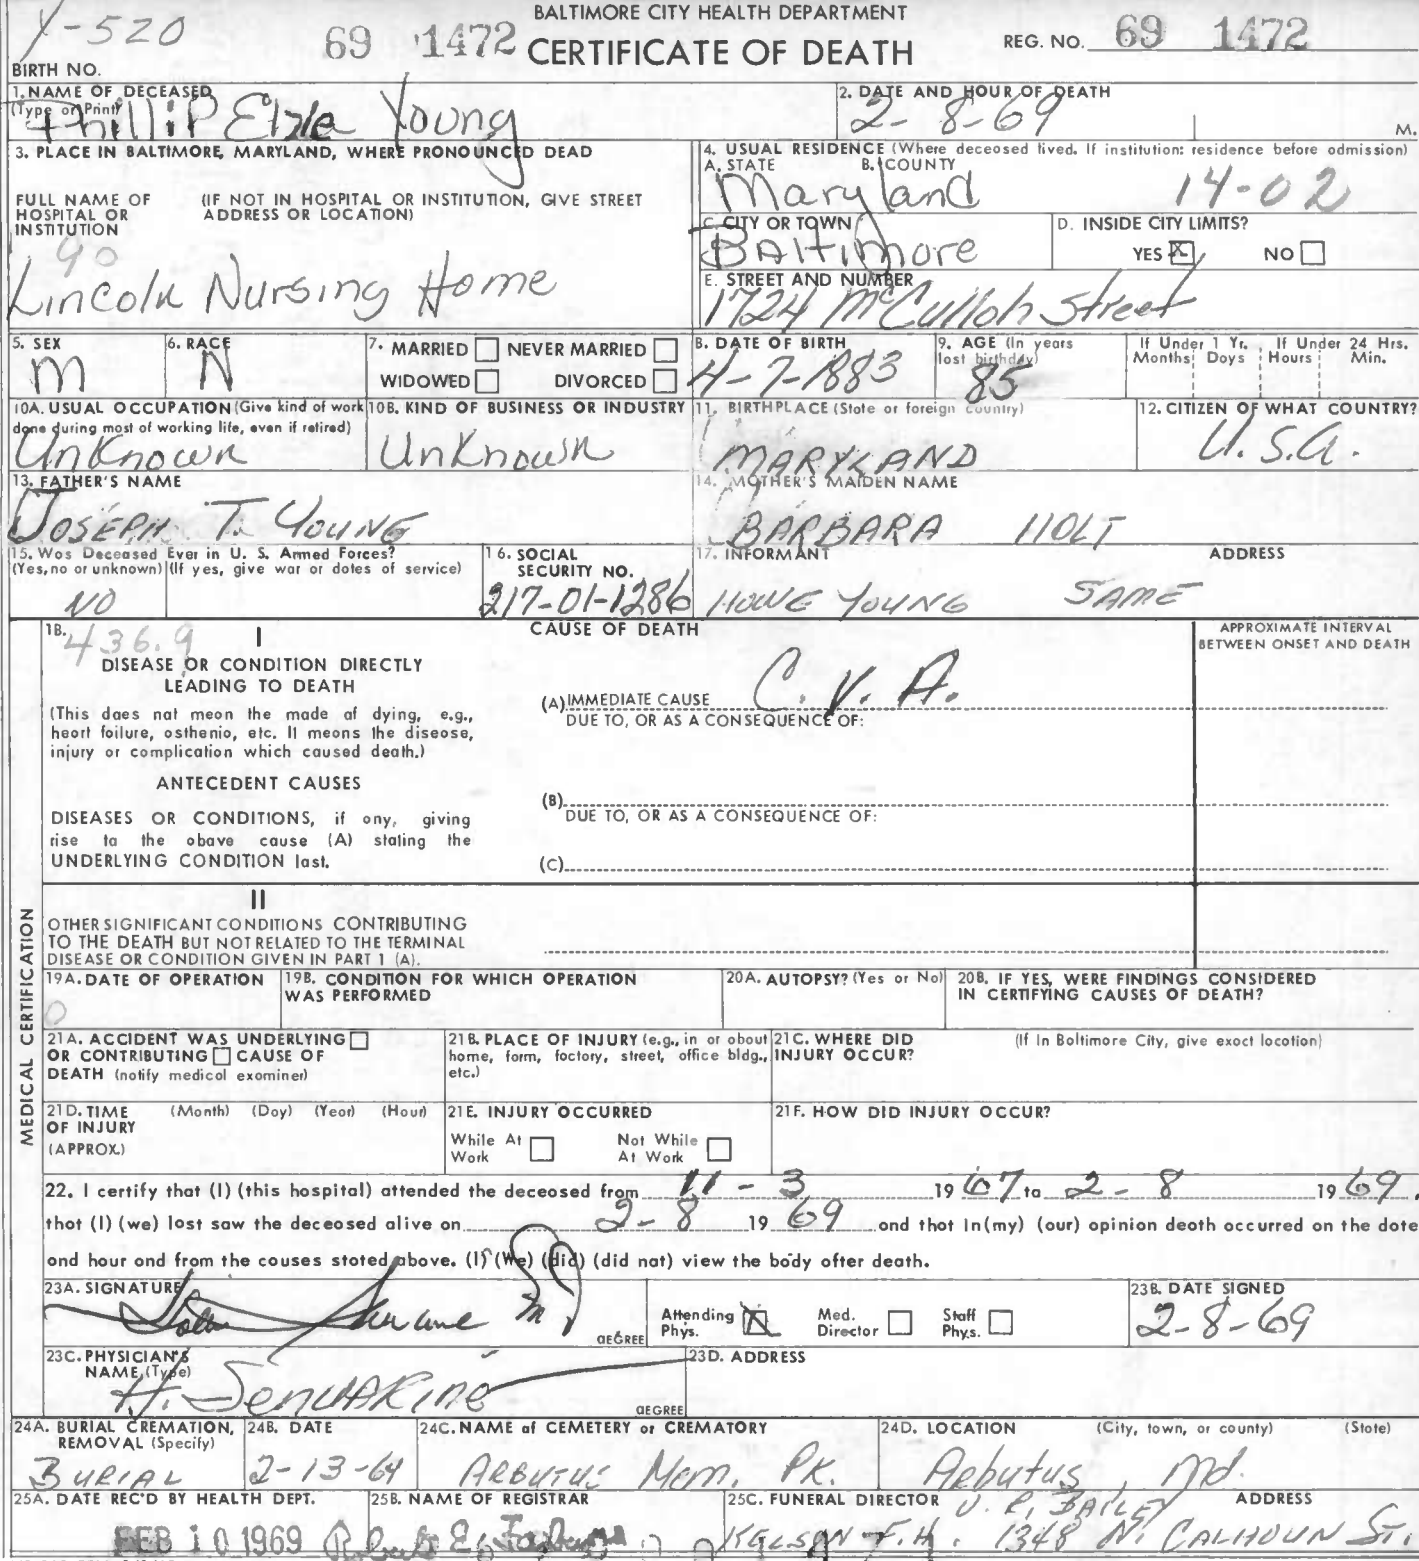 Y-520
BALTIMORE CITY HEALTH DEPARTMENT
69 1472 CERTIFICATE OF DEATH REG. NO. 69 1472
BIRTH NO.
1. NAME OF DECEASED (Type or Print) Phillip Elzle Young
2. DATE AND HOUR OF DEATH 2-8-69 M.
3. PLACE IN BALTIMORE, MARYLAND, WHERE PRONOUNCED DEAD
FULL NAME OF HOSPITAL OR INSTITUTION (IF NOT IN HOSPITAL OR INSTITUTION, GIVE STREET ADDRESS OR LOCATION)
90
Lincoln Nursing Home
4. USUAL RESIDENCE (Where deceased lived. If institution: residence before admission)
A. STATE B. COUNTY
Maryland 14-02
C. CITY OR TOWN Baltimore
D. INSIDE CITY LIMITS? YES X NO
E. STREET AND NUMBER
1724 McCulloh Street
5. SEX M
6. RACE N
7. MARRIED NEVER MARRIED WIDOWED DIVORCED
8. DATE OF BIRTH 4-7-1883
9. AGE (In years last birthday) 85
If Under 1 Yr. Months Days If Under 24 Hrs. Hours Min.
10A. USUAL OCCUPATION (Give kind of work done during most of working life, even if retired) Unknown
10B. KIND OF BUSINESS OR INDUSTRY Unknown
11. BIRTHPLACE (State or foreign country) MARYLAND
12. CITIZEN OF WHAT COUNTRY? U.S.A.
13. FATHER'S NAME JOSEPH T. YOUNG
14. MOTHER'S MAIDEN NAME BARBARA HOLT
15. Was Deceased Ever in U. S. Armed Forces? (Yes, no or unknown) (If yes, give war or dates of service) NO
16. SOCIAL SECURITY NO. 217-01-1286
17. INFORMANT ADDRESS
HOWE YOUNG SAME
18. 436.9 I
DISEASE OR CONDITION DIRECTLY LEADING TO DEATH
(This does not mean the mode of dying, e.g., heart failure, asthenia, etc. It means the disease, injury or complication which caused death.)
ANTECEDENT CAUSES
DISEASES OR CONDITIONS, if any, giving rise to the above cause (A) stating the UNDERLYING CONDITION last.
CAUSE OF DEATH
APPROXIMATE INTERVAL BETWEEN ONSET AND DEATH
(A) IMMEDIATE CAUSE C.V.A.
DUE TO, OR AS A CONSEQUENCE OF:
(B)
DUE TO, OR AS A CONSEQUENCE OF:
(C)
II
OTHER SIGNIFICANT CONDITIONS CONTRIBUTING TO THE DEATH BUT NOT RELATED TO THE TERMINAL DISEASE OR CONDITION GIVEN IN PART 1 (A).
MEDICAL CERTIFICATION
19A. DATE OF OPERATION 0
19B. CONDITION FOR WHICH OPERATION WAS PERFORMED
20A. AUTOPSY? (Yes or No)
20B. IF YES, WERE FINDINGS CONSIDERED IN CERTIFYING CAUSES OF DEATH?
21A. ACCIDENT WAS UNDERLYING OR CONTRIBUTING CAUSE OF DEATH (notify medical examiner)
21B. PLACE OF INJURY (e.g., in or about home, farm, factory, street, office bldg., etc.)
21C. WHERE DID INJURY OCCUR? (If in Baltimore City, give exact location)
21D. TIME OF INJURY (APPROX.) (Month) (Day) (Year) (Hour)
21E. INJURY OCCURRED While At Work Not While At Work
21F. HOW DID INJURY OCCUR?
22. I certify that (I) (this hospital) attended the deceased from 11-3 1967 to 2-8 1969,
that (I) (we) last saw the deceased alive on 2-8 1969 and that in (my) (our) opinion death occurred on the date
and hour and from the causes stated above. (I) (We) (did) (did not) view the body after death.
23A. SIGNATURE MD DEGREE
Attending Phys. X Med. Director Staff Phys.
23B. DATE SIGNED 2-8-69
23C. PHYSICIAN'S NAME (Type) H. DEGREE
23D. ADDRESS
24A. BURIAL CREMATION, REMOVAL (Specify) BURIAL
24B. DATE 2-13-69
24C. NAME of CEMETERY or CREMATORY ARBUTUS Mem. PK.
24D. LOCATION (City, town, or county) (State)
Arbutus, Md.
25A. DATE REC'D BY HEALTH DEPT. FEB 10 1969
25B. NAME OF REGISTRAR Robert E.
25C. FUNERAL DIRECTOR ADDRESS
BAILEY
KELSON F.H. 1348 N. CALHOUN ST.